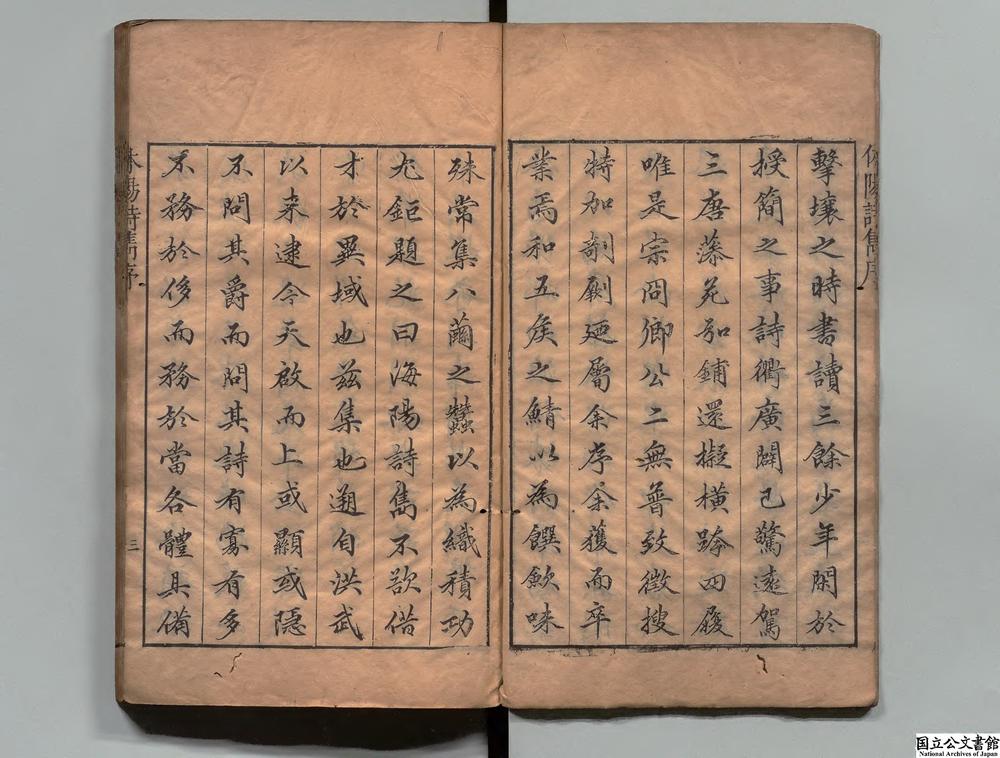 擊壤之時書讀三餘少年閑於
授簡之事詩衢廣闢已驚遠駕
三唐藻苑弘鋪還擬橫跨四履
唯是宗問卿公二無普致徵搜
特加剞劂廼屬余序余獲而卒
業焉和五侯之鯖以為饌歛味
殊常集八繭之蠶以為織積功
尤鉅題之曰海陽詩雋不欲借
才於異域也茲集也遡自洪武
以来逮今天啟而上或顯或隱
不問其爵而問其詩有寡有多
不務於侈而務於當各體具備
休陽詩雋序
三
国立公文書館
National Archives of Japan